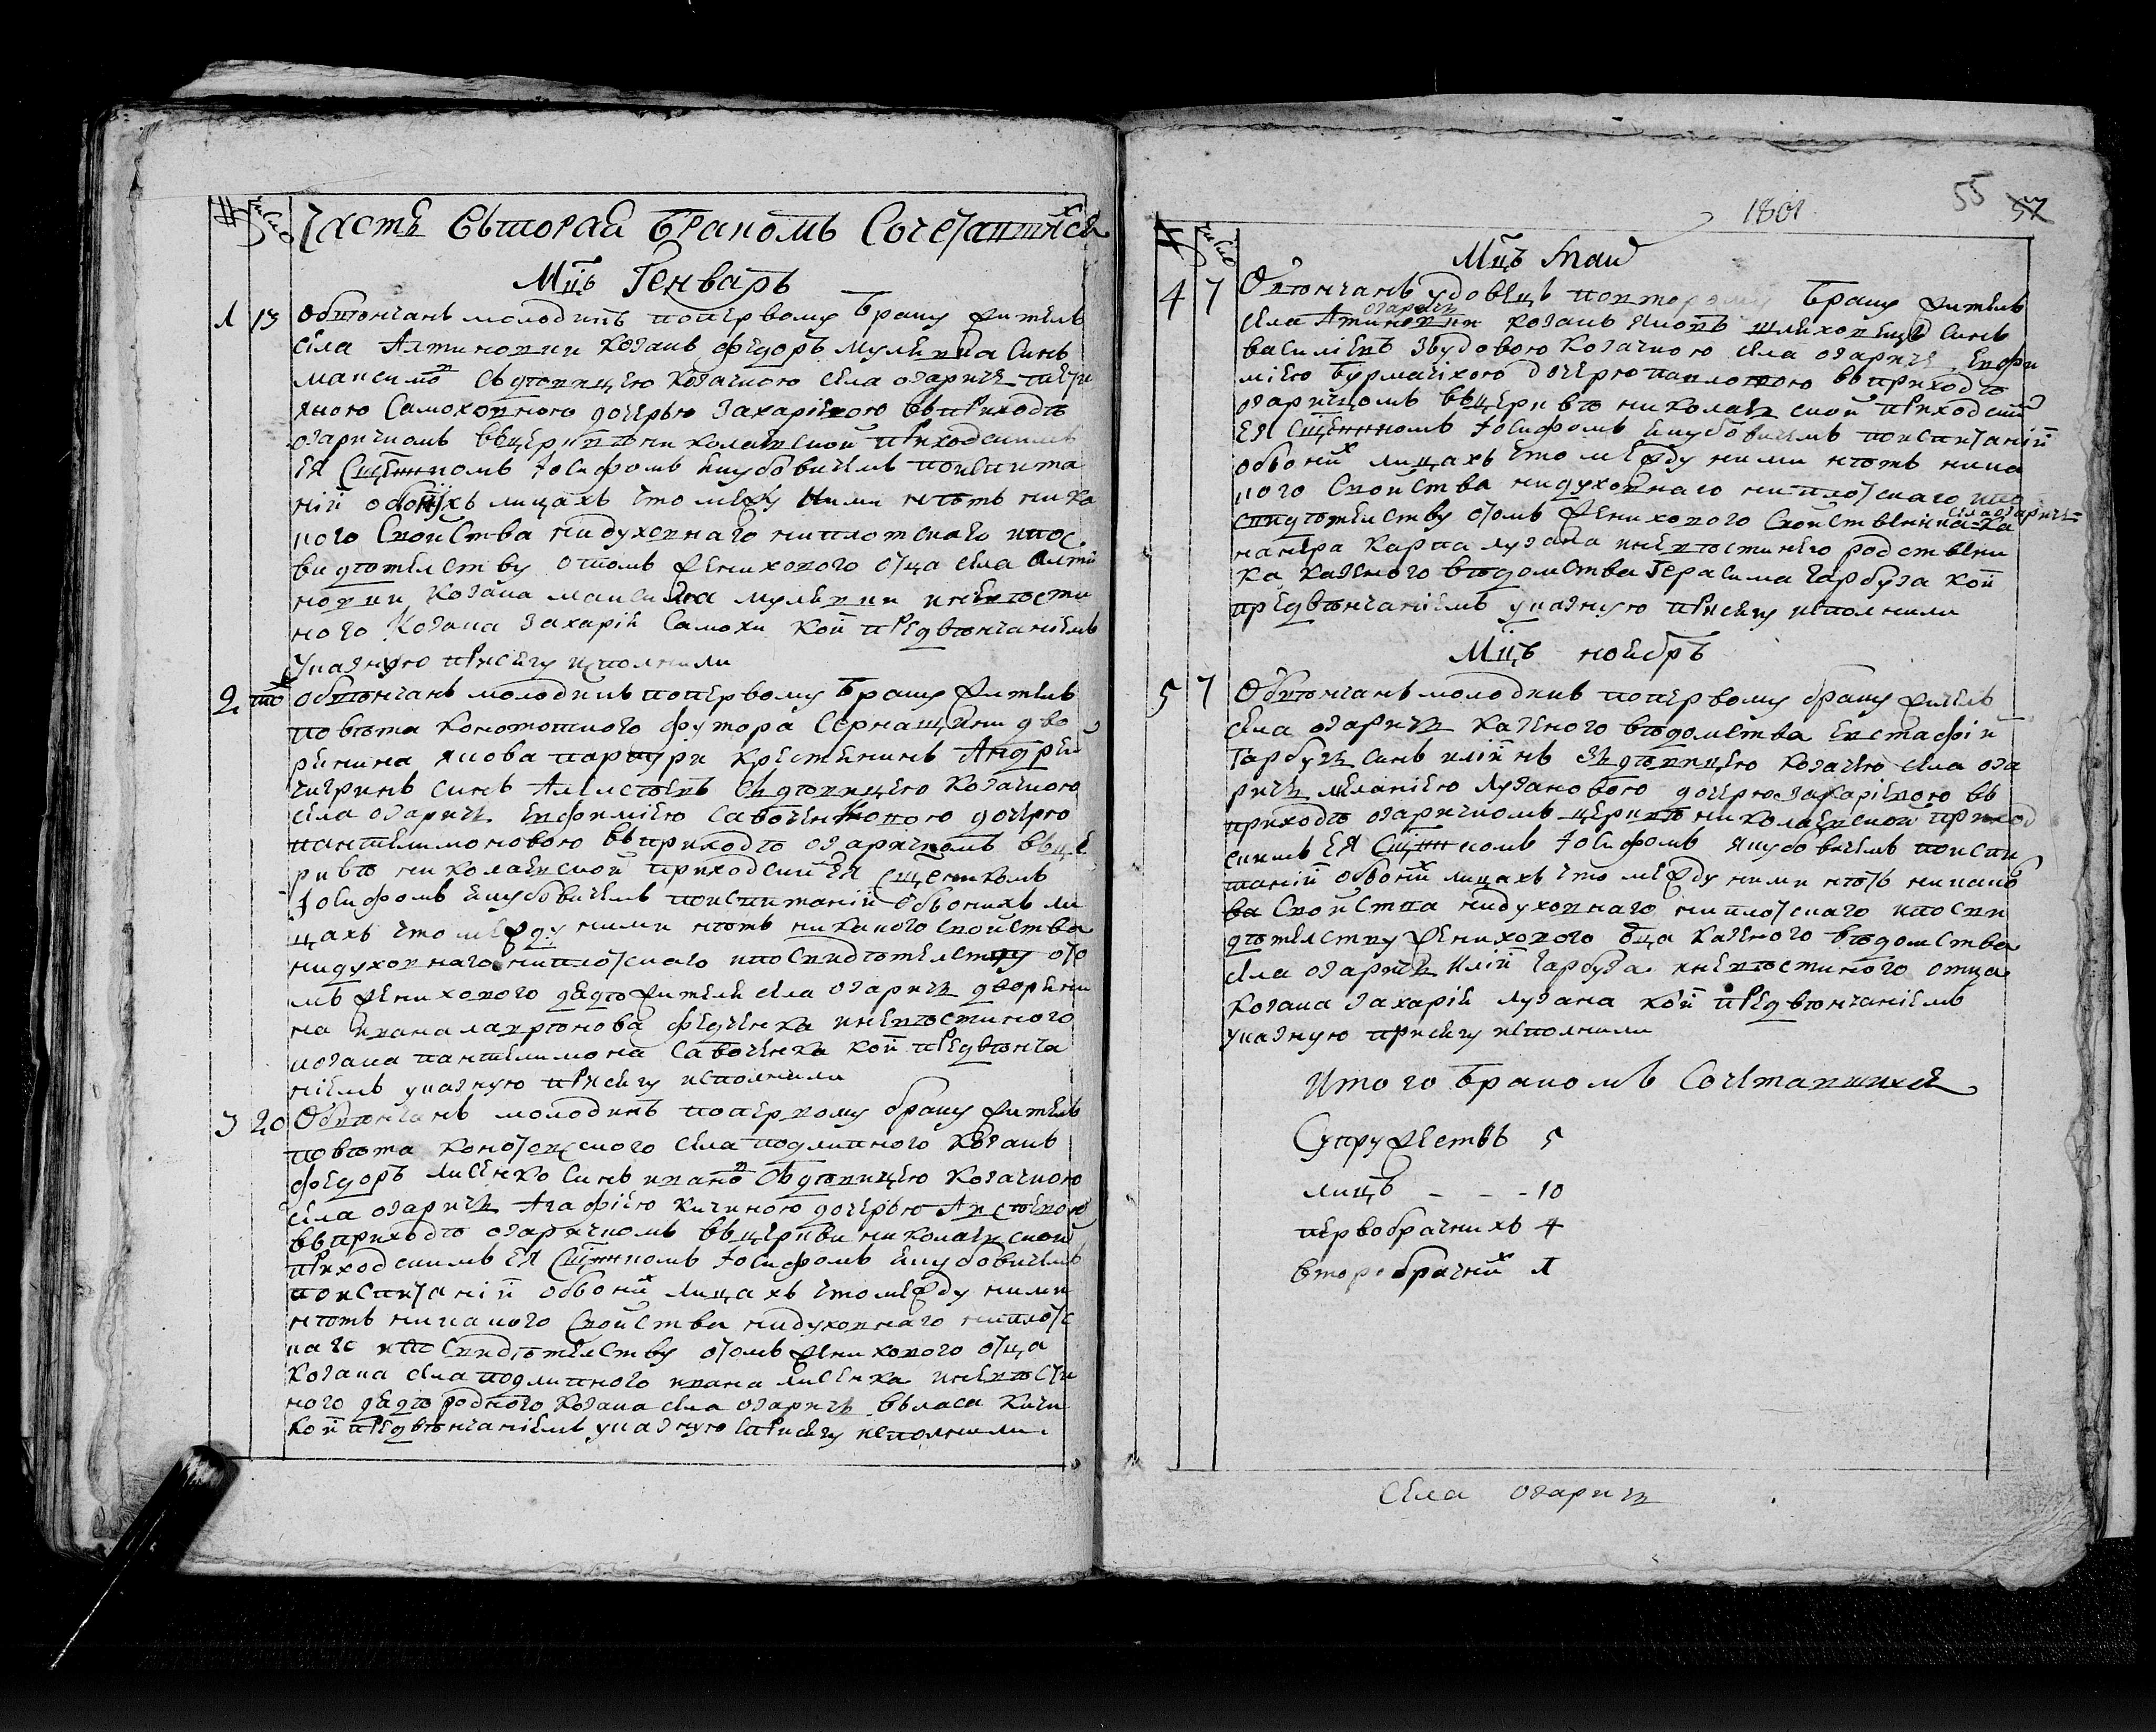 № число Часть Вьторая бракомъ Сочетавшихся
Мцъ Генварь
1 13 Обвѣнчанъ молодикъ попервому браку житель
села Алтиновки козакъ Федоръ Мулевка синъ
Максимов Съдѣвицею козачкою села озаричъ
Самоховною дочерью Захаріевою въприходѣ
озарицкомъ въцерквѣ николаевской приходскимъ
ея Сщенникомъ Іосифомъ Якубовичемъ поиспита
ній обоихъ лицахъ что межу ними нѣтъ ника
кого Свойства нидуховнаго ниплотскаго ипос
видѣтелству отомъ женихового отца села Алти
новки козака максима мулевки иневѣсти
ного козака Захарія Самохи кои предвѣнчаніемъ
указную присягу исполнили
2 то Обвѣнчанъ молодикъ попервому браку житель
повѣта конотопского футора Сернащини дво
ренина якова парпури крестенинъ Андрей
чигринъ синъ Алексѣевъ Съдѣвицею козачкою
села озаричъ Евфиміею Савоченковою дочерю
пантелимоновою въприходѣ озарицкомъ въце
рквѣ николаевской приходским ея Сщенникомъ
Іосифомъ Якубовичемъ поиспитаній обоихъ ли
цахъ что между ними нѣтъ никакого свойства
нидуховнаго ниплотскаго ипосвидѣтелству ото
мъ женихового дядѣ жителя села озаричъ дворени
на ивана лаврѣнова федченка иневѣстиного
козака пантелимона Савоченка кои предвѣнча
ніемъ указную присягу исполнили
3 20 Обвѣнчанъ молодикъ попервому браку житель
повѣта конотопского села подлипного козакъ
федоръ лисенко синъ иванов Съдѣвицею козачкою
села озаричъ Агафіею кичиною дочерью Авсѣевою
въприходѣ озарицкомъ въцеркви николаевской
приходскимъ ея Сщенникомъ Іосифомъ Якубовичемъ
поиспитаній обоих лицахъ что между ними
нѣтъ никакого свойства нидуховнаго ниплотс
каго ипосвидѣтелству отомъ женихового отца
козака села подлипного ивана лисенка иневѣсти
ного дядѣ родного козака села озаричъ власа кичи
кои предвѣнчаніемъ указную присягу исполнили
1801 55 57
№ число
Мцъ маи
4 7 Обвѣнчанъ удовецъ повторому браку житель
озаричъ
села Атиновки козакъ яковъ шлиховецъ синъ
василіевъ звудовою козачкою села озаричъ Евфи
міею бурмачкою дочерю павловною въприходѣ
озарицкомъ въцерквѣ николаевской приходским
ея Сщенникомъ Іосифомъ Якубовичемъ поиспитаній
обоих лицахъ что между ними нѣтъ ника
кого свойства нидуховнаго ниплотскаго ипо
села озаричъ
свидѣтелству отомъ женихового свойственника ка
нанера карпа лузана иневѣстиного родствени
ка казеного вѣдомства Герасима Гарбуза кои
предвѣнчаніемъ указную присягу исполнили
Мцъ ноябръ
5 7 Обвѣнчанъ молодикъ попервому браку житель
села озаричъ казеного вѣдомства Евстафій
Гарбузъ синъ иліинъ здѣвицею козачею села оза
ричъ меланіею лузановою дочерю захаріевою въ
приходѣ озарицкомъ церквѣ николаевской приход
скимъ ея Сщенникомъ Іосифомъ якубовичемъ поиспи
таній обоих лицахъ что между ними нѣтъ никако
ва свойства нидуховнаго ниплотскаго ипосви
дѣтелству женихового оца казеного вѣдомства
села озаричъ иліи гарбуза иневѣстиного отца
козака захарія лузана кои предвѣнчаніемъ
указную присягу исполнили
Итого бракомъ Сочетавшихся
Супружествъ 5
лицъ - - - 10
первобрачнихъ 4
второбрачних 1
Села озаричъ